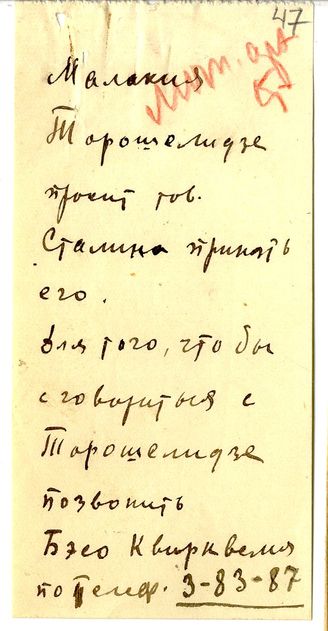 47
Малакия
Торошелидзе
просит тов.
Сталина принять
его.
Для того, что бы
сговориться с
Торошелидзе
позвонить
Бэсо Квирквелия
по телеф. 3-83-87